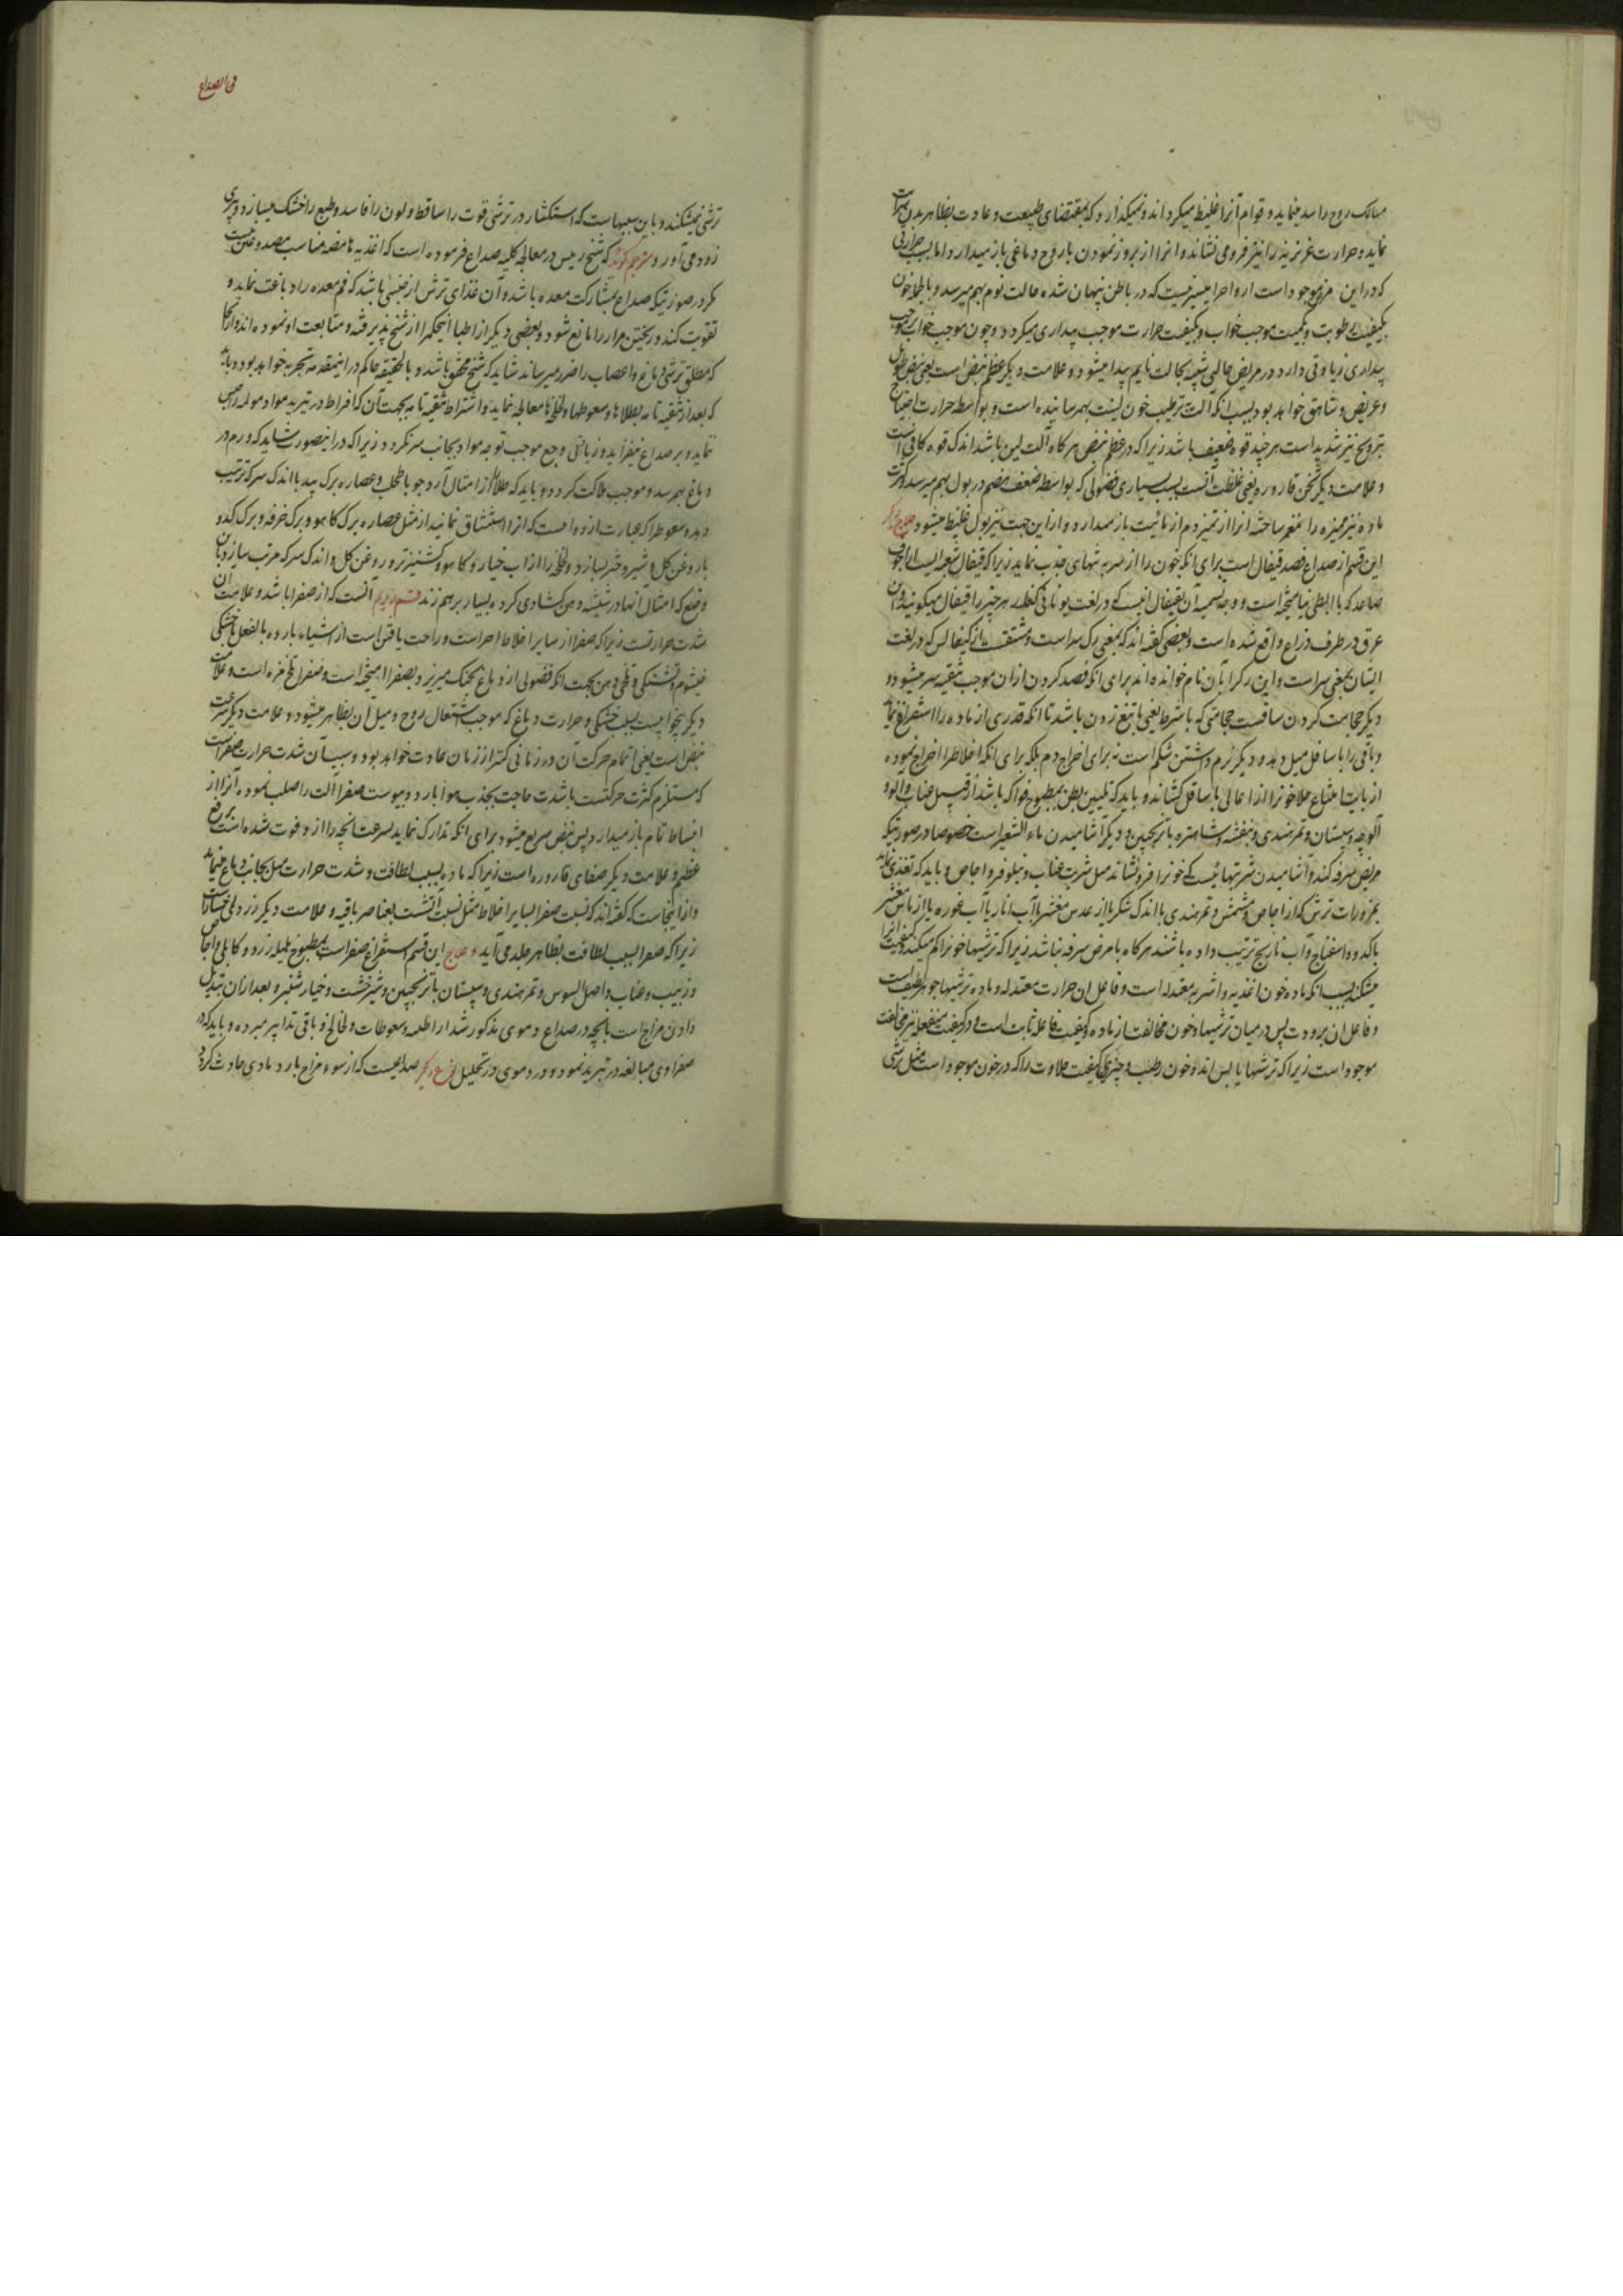 مسالک روح را سد مینماید و قوام آنرا غلیظ میکرداند و نمیکذارد که بمقتضای طبیعت و عادت بظاهر بدن سرایت
نماید و حرارت غریزیه را نیز فرو می نشاند و انرا از بروز نمودن با روح دماغی باز میدارد و اما بسبب حرارتی
که در این مزاج موجود است ارواح را میسر نیست که در باطن پنهان شده حالت نوم بهم میرسد و بالجمله خون
بکیفیت رطوبت و بکمیت موجب خواب و بکیفیت حرارت موجب بیداری میکردد و چون موجب خواب بر موجب
بیداری زیادتی دارد در مریض حالتی شبیه بحالت نایم پیدا میشود و علامت دیکر عظم نبض است یعنی نبض طویل
و عریض و شاهق خواهد بود بسبب انکه آلت بترطیب خون لینت بهم رسانیده است و بواسطه حرارت احتیاج
بترویح نیز شدید است هر چند قوه ضعیف باشد زیرا که در عظم نبض هر کاه آلت لین باشد اندک قوه کافی است
و علامت دیکر ثخن قاروره یعنی غلظت آنست بسبب بسیاری فضولی که بواسطه ضعف هضم در بول بهم میرسد و کثرت
ماده نیز ممیزه را ساخته انرا از تمیز دم از مائیت باز میدارد و از این جهت نیز بول غلیظ میشود و علاج
این قسم از صداع فصد قیفال است برای انکه خون را از سر به تنهای جذب نماید زیرا که قیفال شعبه ایست از اجوف
صاعد که با ابطی نیامیخته است و وجه تسمیه آن بقیفال انیست که در لغت یونانی هر چیز را قیفال میکویند و این
عرق در طرف ذراع واقع شده است و بعضی کفته اند که بمعنی رک سر است و مشتق است از کیفالس که در لغت
ایشان بمعنی سر است و این رک را بآن نام خوانده اند برای انکه فصد کردن از ان موجب تنقیه سر میشود و
دیکر حجامت کردن ساقست حجامتی که با شرط یعنی با تیغ زدن باشد تا انکه قدری از ماده را استفراغ نماید
و باقی را باسافل میل دهد و دیکر نرم داشتن شکم است نه برای اخراج دم بلکه برای انکه اخلاط را اخراج نموده
از باب اتباع خلا خون را از اعالی باسافل کشاند و باید که تلیین بطن بمطبوخ فواکه باشد از قبیل عناب و آلو و
آلوچه و سپستان و تمر هندی و بنفشه و شاهتره با ترنجبین و دیکر آشامیدن ماء الشعیر است خصوصا در صورتیکه
مریض سرفه کند و آشامیدن شربتهائیست که خون را فرو نشاند مثل شربت عناب و نیلوفر و اجاص و باید که تغذی نماید
بمزورات ترش که از اجاص و مشمش و تمر هندی با اندک شکر یا از عدس مقشر با آب انار یا آب غوره یا از ماش مقشر
با کدو و اسفناخ و آب نارنج ترتیب داده باشند هر کاه با مرض سرفه نباشد زیرا که ترشیها خون را کم میکند و کیفیت انرا
میشکند بسبب انکه ماده خون اغذیه و اشربه معتدله است و فاعل ان حرارت معتدله و ماده ترشیها جوهر لطیف است
و فاعل ان برودت پس در میان ترشیها و خون مخالفت از ماده و کیفیت فاعله ثابت است و در کیفیت منفعله نیز مخالفت
موجود است زیرا که ترشیها یابس اند و خون رطب و چیزی کیفیت حلاوت را که در خون موجود است مثل ترشی
فی الصداع
ترشی نمیشکند و باین سببهاست که استکثار در ترشی قوت را ساقط و لون را فاسد و طبع را خشک میسازد و پیری
زود می آورد و مترجم کوید که شیخ رییس در معالجه کلیه صداع فرموده است که اغذیه حامضه مناسب مصدوعین نیست
مکر در صورتیکه صداع بمشارکت معده باشد و آن غذای ترش از جنسی باشد که فم معده را دباغت نماید و
تقویت کند و ریختن مرار را مانع شود و بعضی دیکر از اطبا اینحکم را از شیخ پذیرفته و متابعت او نموده اند
که مطلق ترشی دماغ و اعصاب را ضرر میرساند شاید که شیخ محق باشد و بالحقیقه حاکم در اینمقدمه تجربه خواهد بود و باید
که بعد از تنقیه تامه بطلاها و سعوطها و لخلخه ها معالجه نماید و اشتراط تنقیه تامه بجهت آن که افراط در تبرید مواد مولمه را
نماید و بر صداع میفزاید و زیادتی وجع موجب توجه مواد بجانب سر کردد زیرا که در اینصورت شاید که ورم در
دماغ بهم رسد و موجب هلاکت کردد و باید که طلا را از امثال آرد جو با طحلب و عصاره برک بید با اندک سرکه ترتیب
دهد و سعوط را که عبارت از دوائیست که انرا استنشاق نمایند از مثل عصاره برک کاهو و برک خرفه و برک کدو
با روغن کل و شیر دختر بسازد و لخلخه را از آب خیار و کاهو و کشنیز تر و روغن کل و اندک سرکه مرتب سازد بان
وضع که امثال آنها در شیشه دهن کشادی کرده بسیار بر هم زند قسم دویم آنست که از صفرا باشد و علامت آن
شدت حرارتست زیرا که صفرا از سایر اخلاط احر است و راحت یافتن است از اشیاء بارده بالفعل و خشکی
خیشوم و تشنکی و تلخی دهن بجهت انکه فضولی از دماغ بحنک میریزد بصفرا امیخته است و صفرا تلخ مزه است و علامت
دیکر بیخوابیست بسبب خشکی و حرارت دماغ که موجب اشتعال روح و میل آن بظاهر میشود و علامت دیکر سرعت
نبض است یعنی اتمام حرکت آن در زمانی کمتر از زمان عادت خواهد بود و سبب آن شدت حرارت صفراست
که مستلزم کثرت حرکتست با شدت حاجت بجذب هوا بارد و یبوست صفرا آلت را صلب نموده آنرا از
انبساط تام باز میدارد پس نبض سریع میشود برای انکه تدارک نماید بسرعت انچه را از او فوت شده است
عظم و علامت دیکر صفای قاروره است زیرا که ماده بسبب لطافت و شدت حرارت میل بجانب دماغ مینماید
و از اینجاست که کفته اند که نسبت صفرا بسایر اخلاط مثل نسبت آتشست بعناصر باقیه و علامت دیکر زردی رخسار است
زیرا که صفرا بسبب لطافت بظاهر جلد می آید و علاج این قسم استفراغ صفراست بمطبوخ هلیله زرد و کابلی و اجاص
و زبیب و عناب و اصل السوس و تمر هندی و سپستان با ترنجبین و شیرخشت و خیار شنبر و بعد از ان تبدیل
دادن مزاج است بانچه در صداع دموی مذکور شد از اطلیه و سعوطات و لخالخ و باقی تدابیر مبرده و باید که در
صفراوی مبالغه در تبرید نمود و در دموی در تحلیل نوع دیکر صداعیست که از سوء مزاج بارد مادی حادث کردد